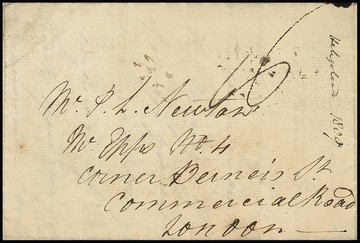 Mr. J. L. Newton
Mr Epps No. 4
corner Berners St
Commercial Road
London
Heligoland 1808